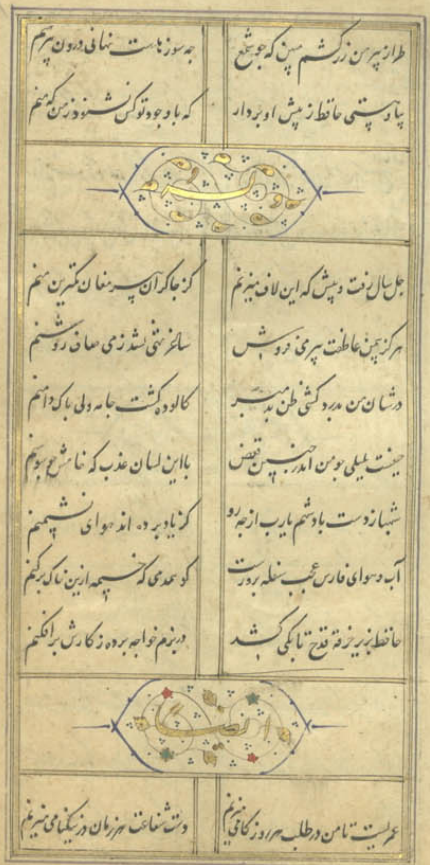 طراز پیرهن زرکشم مبین که چو شمع چه سوزهاست نهانی درون پیرهنم
بیا و هستی حافظ ز پیش او بردار که با وجود تو کس نشنود ز من که منم
وله
چل سال رفت و بیش که این لاف میزنم کز چاکران پیر مغان کمترین منم
هرگز بیمن عاطفت پیر می فروش ساغر تهی نشد ز می صاف روشنم
در شان من بدرد کشی ظن بد مبر کالوده گشت جامه ولی پاک دامنم
حیفست بلبلی چو من اندر چنین قفص با این لسان عذب که خامش چو سوسنم
شهباز دست پادشهم یارب از چه رو کز یاد برده اند هوای نشیمنم
آب و هوای فارس عجب سفله پرورست کو همدمی که خیمه ازین خاک برکنم
حافظ بزیر خرقه قدح تا بکی کشد در بزم خواجه پرده ز کارش برافکنم
ایضا
عمریست تا من در طلب هر روز گامی میزنم دست شفاعت هر زمان در نیکنامی میزنم